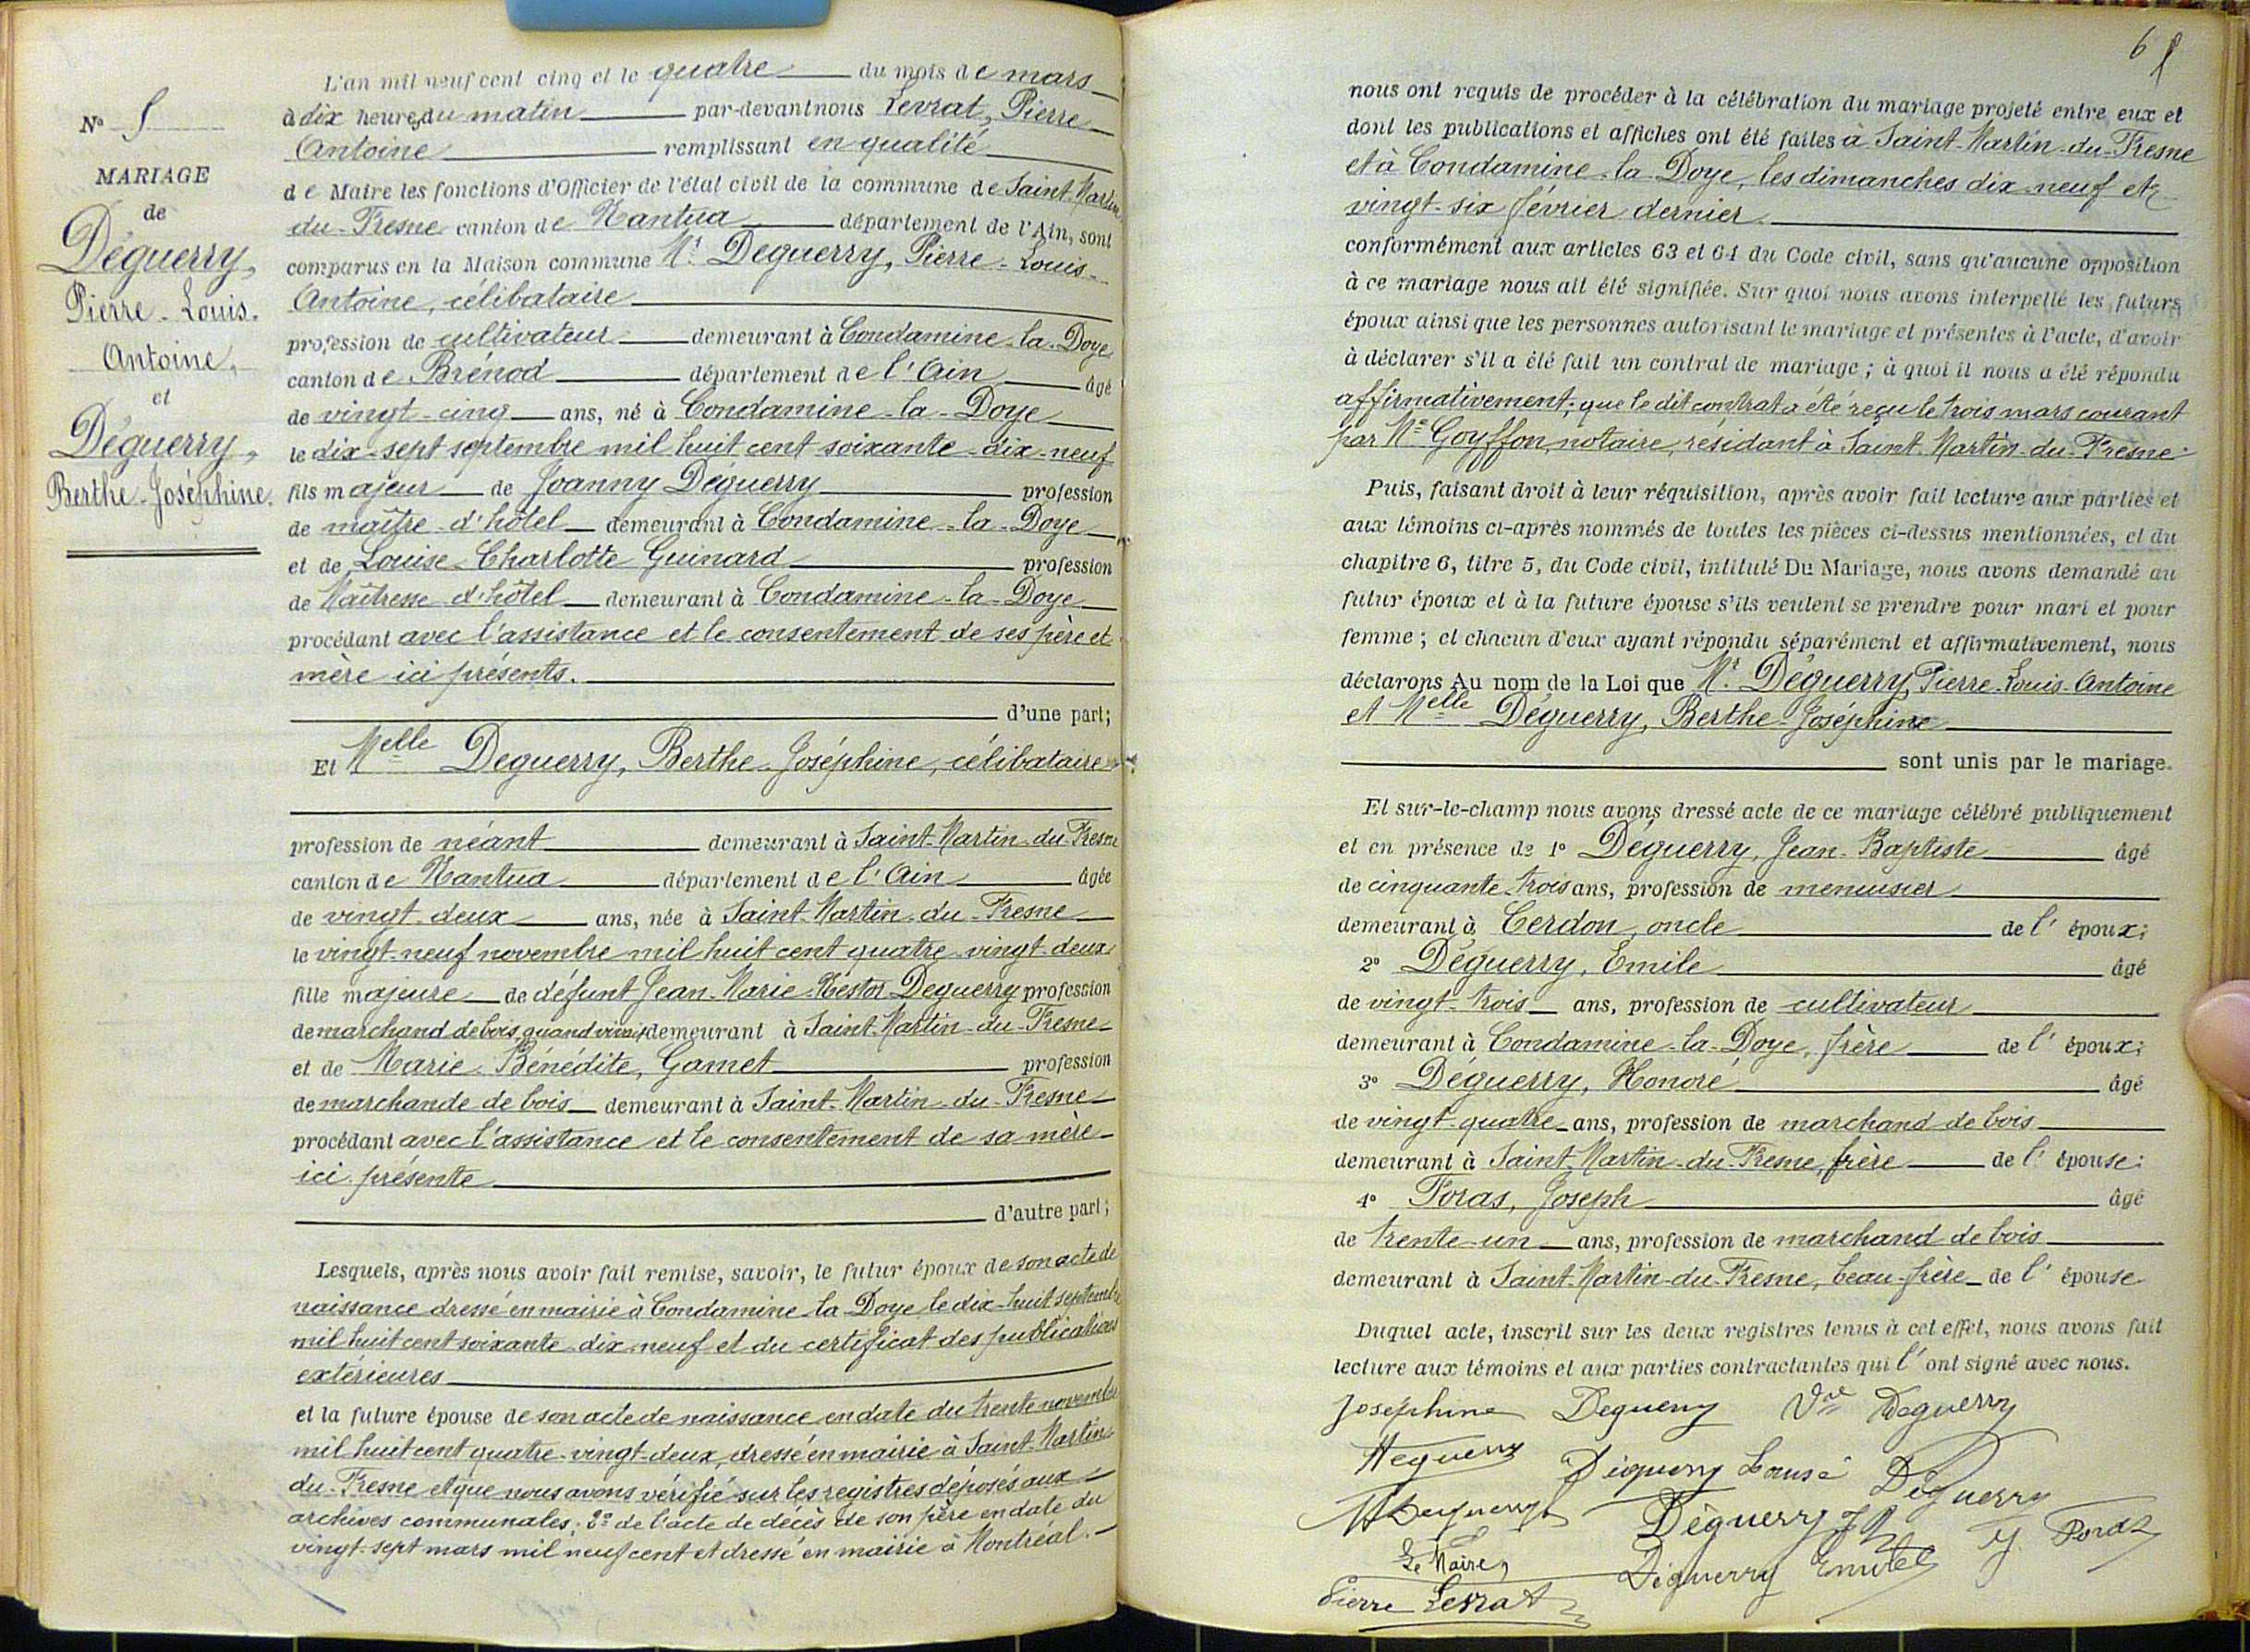 N° 5
MARIAGE
de
Déguerry,
Pierre-Louis-
Antoine,
et
Déguerry,
Berthe-Joséphine.
L'an mil neuf cent cinq et le quatre du mois de mars
à dix heures du matin par-devant nous Levrat, Pierre
Antoine remplissant en qualité
de Maire les fonctions d'Officier de l'état civil de la commune de Saint-Martin
du-Fresne canton de Nantua département de l'Ain, sont
comparus en la Maison commune Mr Deguerry, Pierre-Louis-
Antoine, célibataire
profession de cultivateur demeurant à Condamine-la-Doye
canton de Brénod département de l'Ain âgé
de vingt-cinq ans, né à Condamine-la-Doye
le dix-sept septembre mil huit cent soixante-dix-neuf
fils majeur de Joanny Déguerry profession
de maître d'hôtel demeurant à Condamine-la-Doye
et de Louise-Charlotte Guinard profession
de Maîtresse d'hôtel demeurant à Condamine-la-Doye
procédant avec l'assistance et le consentement de ses père et
mère ici présents.
d'une part;
Et Melle Deguerry, Berthe-Joséphine, célibataire
profession de néant demeurant à Saint-Martin-du-Fresne
canton de Nantua département de l'Ain âgée
de vingt-deux ans, née à Saint-Martin-du-Fresne
le vingt-neuf novembre mil huit cent quatre-vingt-deux
fille majeure de défunt Jean-Marie-Nestor Deguerry profession
de marchand de bois, quand vivait demeurant à Saint-Martin-du-Fresne
et de Marie Bénédite, Gamet profession
de marchande de bois demeurant à Saint-Martin-du-Fresne
procédant avec l'assistance et le consentement de sa mère
ici présente
d'autre part;
Lesquels, après nous avoir fait remise, savoir, le futur époux de son acte de
naissance dressé en mairie à Condamine-la-Doye le dix-huit septembre
mil huit cent soixante-dix-neuf et du certificat des publications
extérieures
et la future épouse de son acte de naissance en date du trente novembre
mil huit cent quatre-vingt-deux, dressé en mairie à Saint-Martin-
du-Fresne et que nous avons vérifié sur les registres déposés aux
archives communales; 2° de l'acte de décès de son père en date du
vingt-sept mars mil neuf cent et dressé en mairie à Montréal.
6
nous ont requis de procéder à la célébration du mariage projeté entre eux et
dont les publications et affiches ont été faites à Saint-Martin-du-Fresne
et à Condamine-la-Doye, les dimanches dix-neuf et
vingt-six février dernier
conformément aux articles 63 et 64 du Code civil, sans qu'aucune opposition
à ce mariage nous ait été signifiée. Sur quoi nous avons interpellé les futurs
époux ainsi que les personnes autorisant le mariage et présentes à l'acte, d'avoir
à déclarer s'il a été fait un contrat de mariage; à quoi il nous a été répondu
affirmativement; que le dit contrat a été reçu le trois mars courant
par Me Goyffon, notaire, résidant à Saint-Martin-du-Fresne.
Puis, faisant droit à leur réquisition, après avoir fait lecture aux parties et
aux témoins ci-après nommés de toutes les pièces ci-dessus mentionnées, et du
chapitre 6, titre 5, du Code civil, intitulé Du Mariage, nous avons demandé au
futur époux et à la future épouse s'ils veulent se prendre pour mari et pour
femme; et chacun d'eux ayant répondu séparément et affirmativement, nous
déclarons Au nom de la Loi que Mr Déguerry, Pierre-Louis-Antoine
et Melle Déguerry, Berthe-Joséphine
sont unis par le mariage.
Et sur-le-champ nous avons dressé acte de ce mariage célébré publiquement
et en présence de 1° Déguerry, Jean-Baptiste âgé
de cinquante-trois ans, profession de menuisier
demeurant à Cerdon, oncle de l'époux;
2° Déguerry, Emile âgé
de vingt-trois ans, profession de cultivateur
demeurant à Condamine-la-Doye, frère de l'époux;
3° Déguerry, Honoré âgé
de vingt-quatre ans, profession de marchand de bois
demeurant à Saint-Martin-du-Fresne, frère de l'épouse;
4° Poras, Joseph âgé
de trente-un ans, profession de marchand de bois
demeurant à Saint-Martin-du-Fresne, beau-frère de l'épouse
Duquel acte, inscrit sur les deux registres tenus à cet effet, nous avons fait
lecture aux témoins et aux parties contractantes qui l'ont signé avec nous.
Joséphine Deguerry Vve Deguerry
Deguerry Louise Déguerry
HDeguerry Déguerry J. Poraz
Le Maire, Déguerry Emile
Pierre Levrat